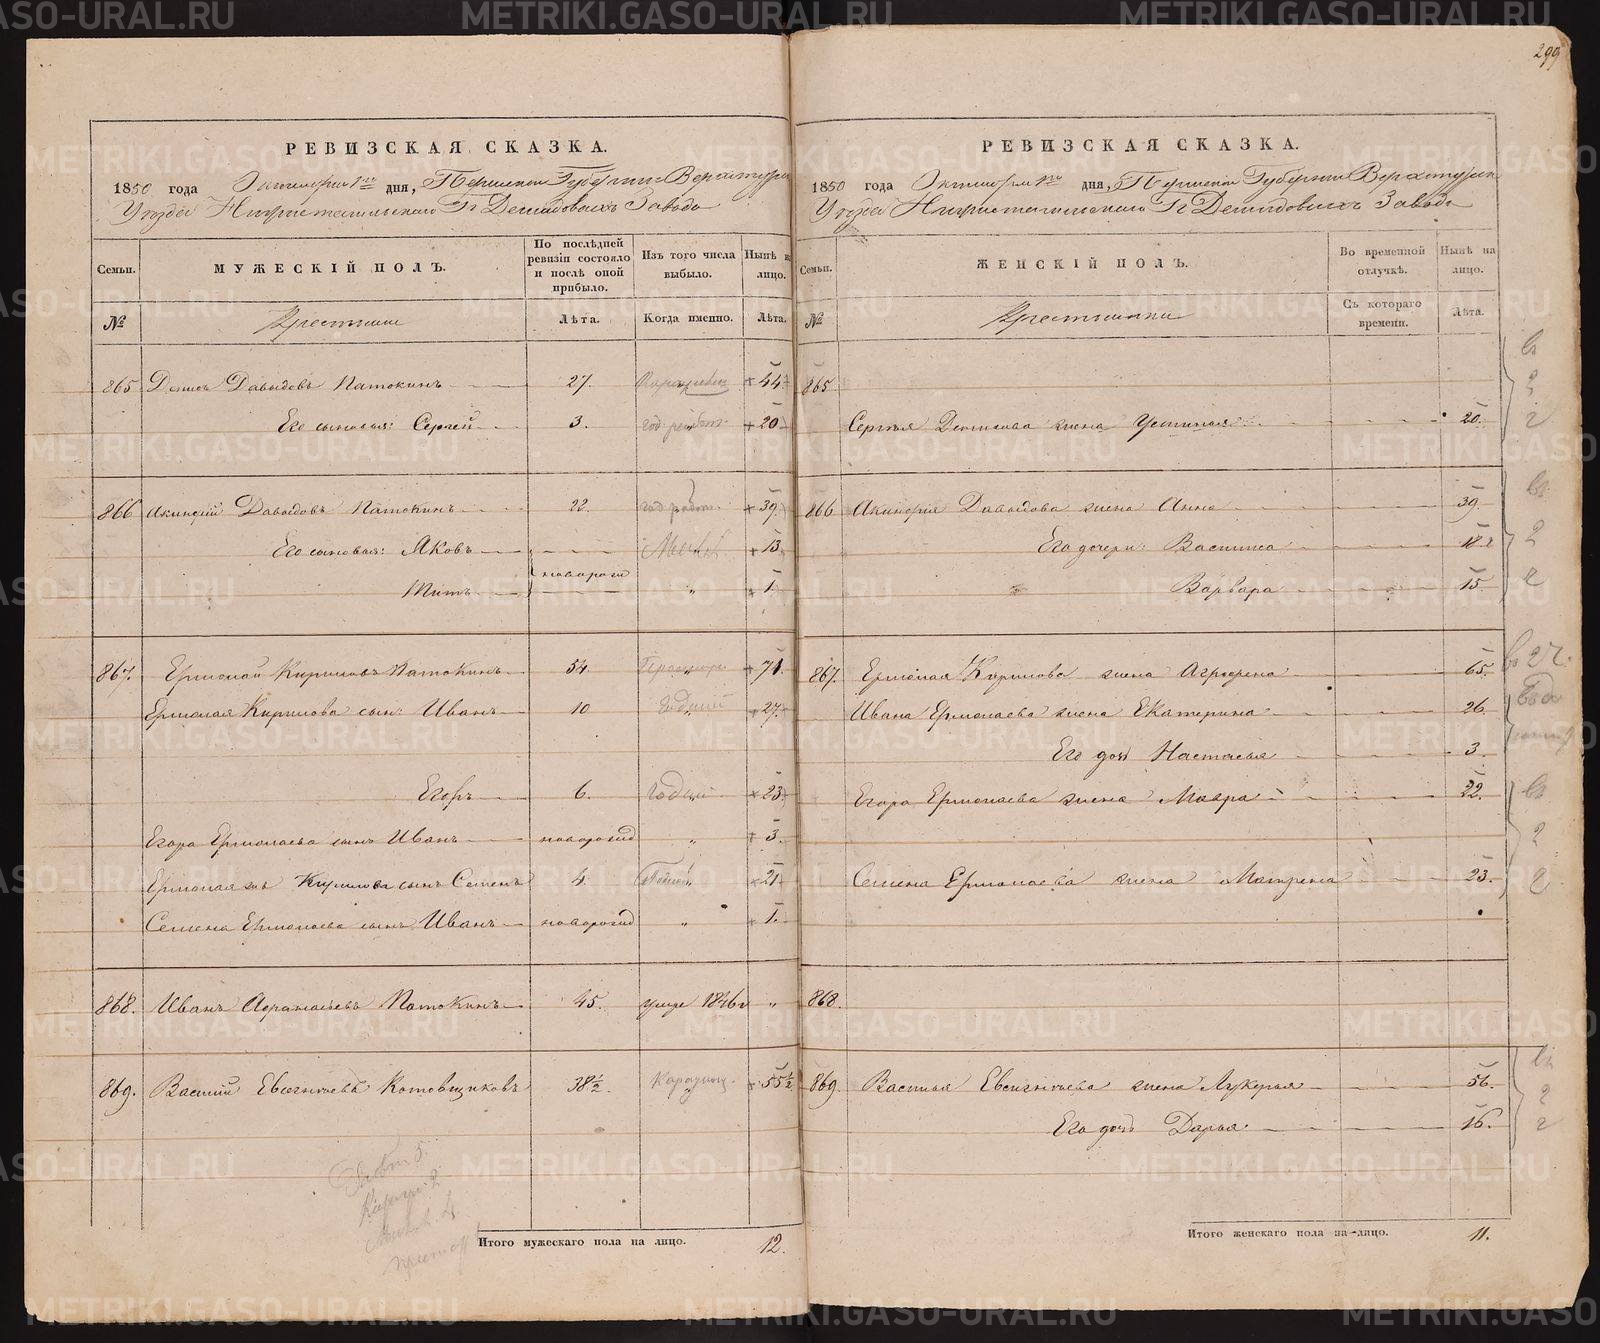 299
РЕВИЗСКАЯ СКАЗКА.
1850 года Октября 1го дня, Пермской Губернии Верхотур.
Уезда Нижнетагильскаго Гг Демидовыхъ Завода
Семьи.
МУЖЕСКІЙ ПОЛЪ.
По послѣдней ревизіи состояло и послѣ оной прибыло.
Изъ того числа выбыло.
Нынѣ на лицо.
№
Крестьяне
Лѣта.
Когда именно.
Лѣта.
865 Денисъ Давыдовъ Патокинъ 27. 44
Его сыновья: Сергей 3. 20
866 Акинфій Давыдовъ Патокинъ 22. 39
Его сыновья: Яковъ 13
Титъ новорожд 1
867. Ермолай Кириловъ Патокинъ 54. 71
Ермолая Кирилова сын: Иванъ 10 27
Егоръ 6. 23
Егора Ермолаева сынъ Иванъ новорожд „ 3.
Ермолая Кирилова сынъ Семенъ 4. 21
Семена Ермолаева сынъ Иванъ новорожд „ 1.
868. Иванъ Афанасьевъ Патокинъ 45. умре 1846 „
869. Василий Евсегнѣевъ Котовщиковъ 38½. 55½
Итого мужескаго пола на лицо. 12.
РЕВИЗСКАЯ СКАЗКА.
1850 года Октября 1го дня, Пермской Губерніи Верхотурск
Уезда Нижнетагильскаго Гг Демидовыхъ Завода
Семьи.
ЖЕНСКІЙ ПОЛЪ.
Во временной отлучкѣ.
Нынѣ на лицо.
№
Крестьянки
Съ котораго времени.
Лѣта.
865
Сергѣя Денисова жена Устинья 20.
866 Акинфія Давыдова жена Анна 39
Его дочери: Василиса 18
Варвара 15
867. Ермолая Кирилова жена Агрофена 65.
Ивана Ермолаева жена Екатерина 26.
Его дочь Настасья 3.
Егора Ермолаева жена Мавра 22.
Семена Ермолаева жена Матрена 23.
868.
869. Василья Евсигнѣева жена Лукерья 56.
Его дочь Дарья 16.
Итого женскаго пола на-лицо. 11.
METRIKI.GASO-URAL.RU